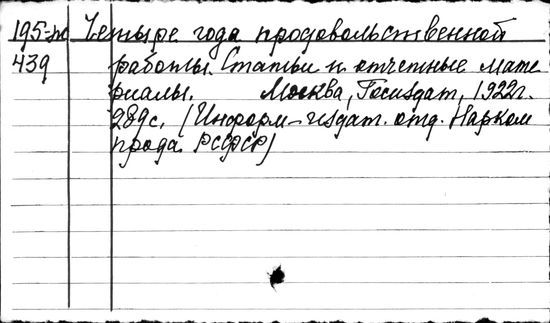 195-ж Четыре года продовольственной
439 работы. Статьи и отчетные мате
риалы. Москва, Госиздат, 1922г.
289с. (Информ-издат. отд. Нарком
прода РСФСР)